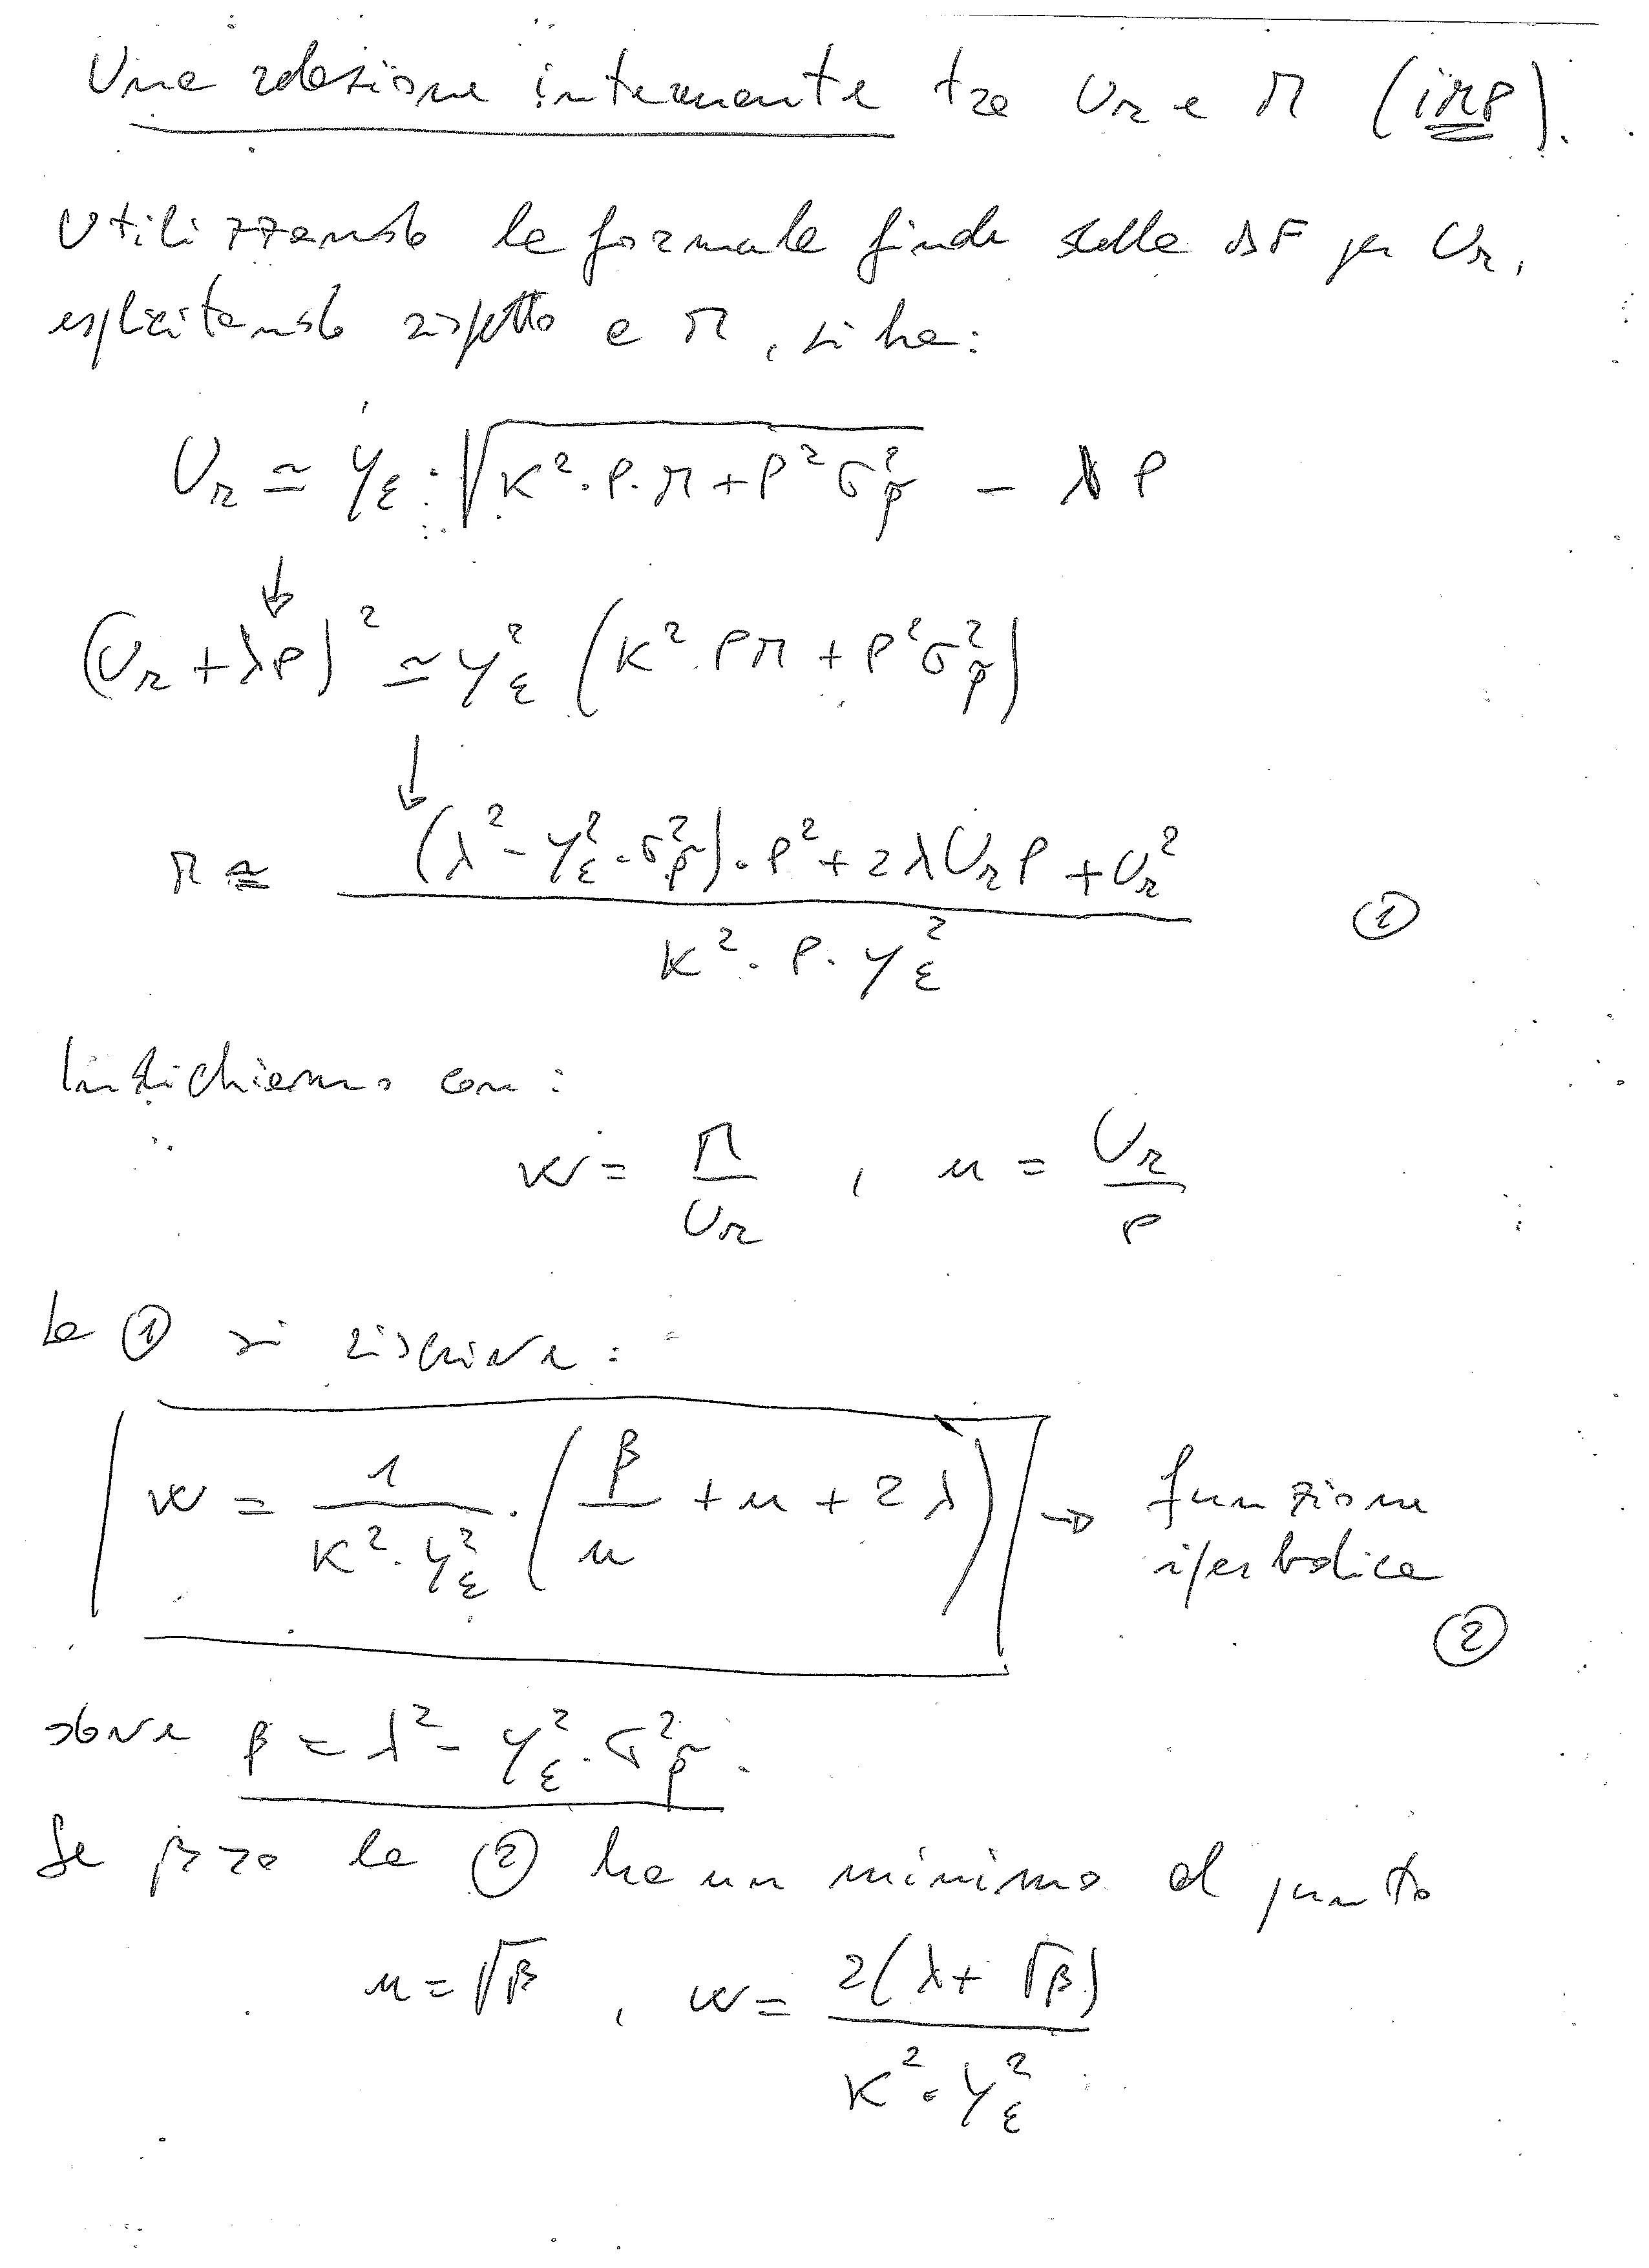 Una relazione interessante tra Ur e M (IMP).
Utilizzando la formula finale della DF per Ur,
esplicitando rispetto a M, si ha:
Ur ≃ yε · √(K² · P · M + P² σ²_p̃) − λP
↓
(Ur + λP)² ≃ y²ε (K² · PM + P² σ²_p̃)
↓
M ≃ ((λ² − y²ε · σ²_p̃) · P² + 2λUrP + Ur²) / (K² · P · y²ε) ①
Indichiamo con:
w = M/Ur , u = Ur/P
la ① si riscrive:
w = 1/(K² · y²ε) · (β/u + u + 2λ) → funzione iperbolica ②
dove β = λ² − y²ε · σ²_p̃.
Se β>0 la ② ha un minimo al punto
u = √β , w = 2(λ + √β)/(K² · y²ε)